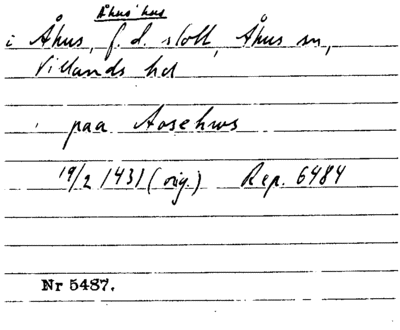 Åhus hus
i Åhus, f. d. slott, Åhus sn,
Villands hd
paa Aosehws
19/2 1431 (orig.) Rep. 6484
Nr 5487.